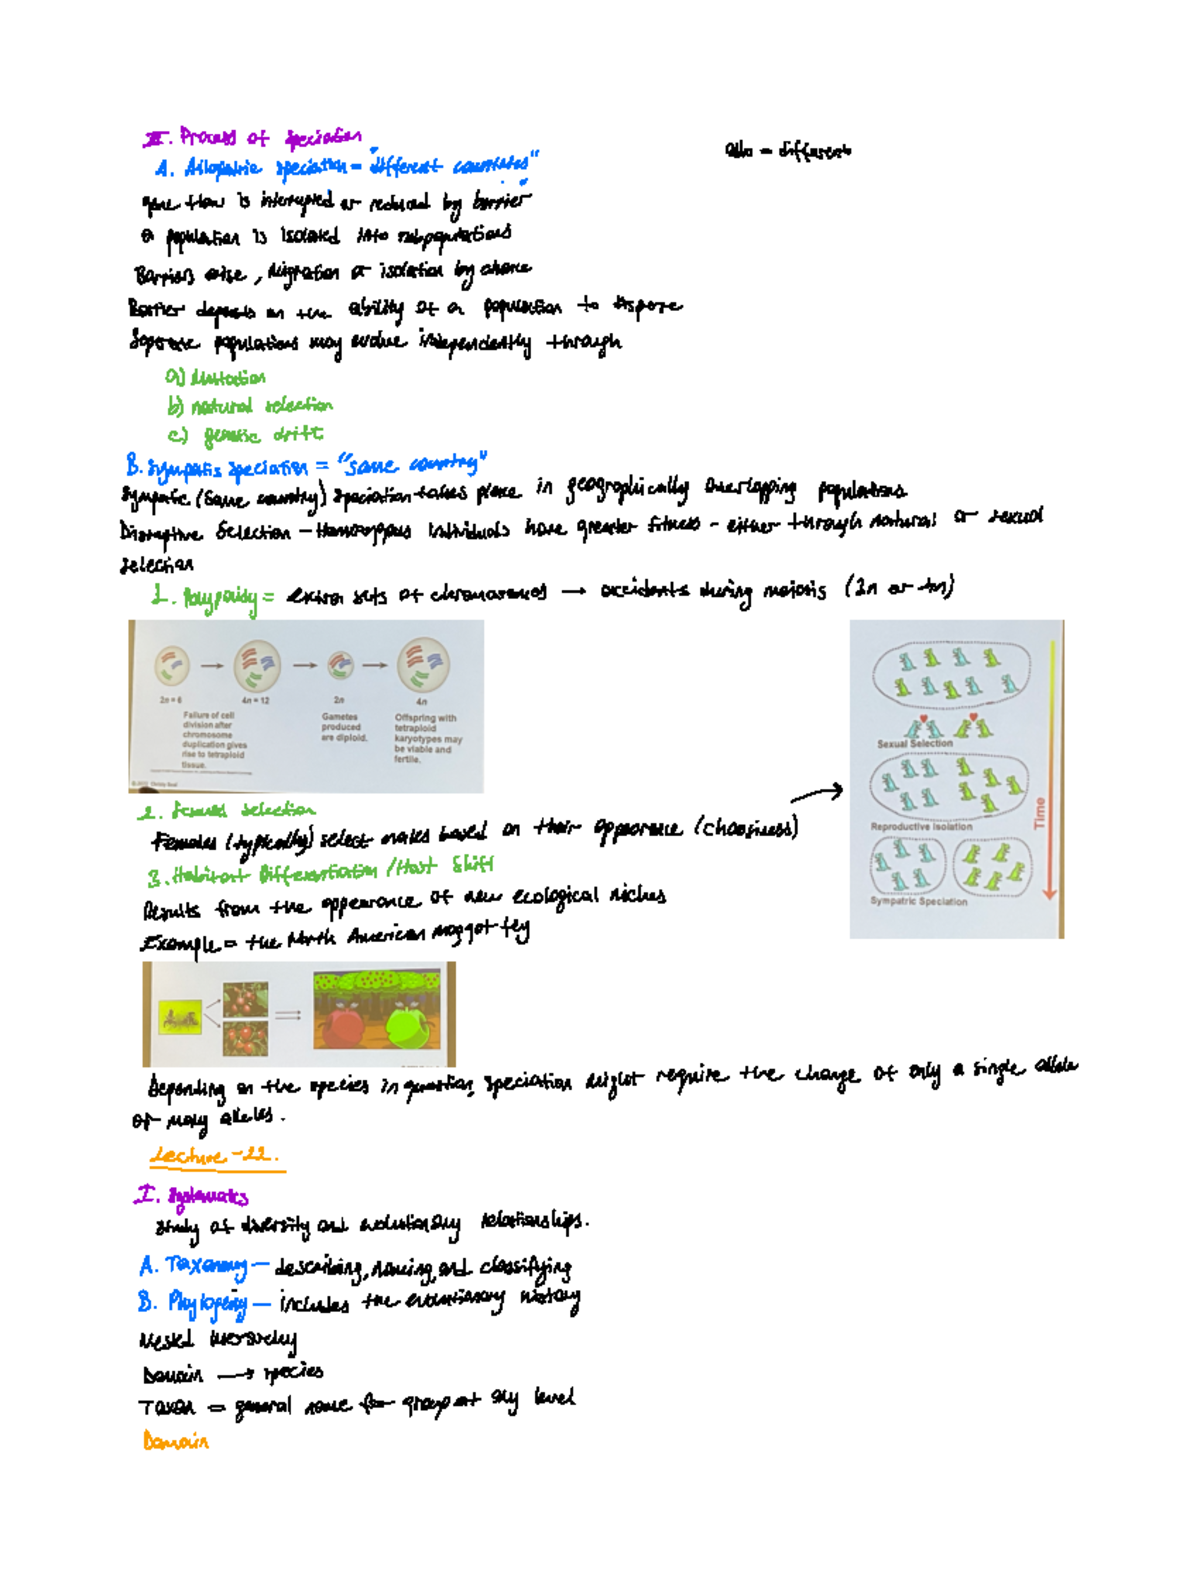 III. Process of Speciation
allo = different
A. Allopatric Speciation = "different countries"
gene flow is interrupted or reduced by barrier
a population is isolated into subpopulations
Barriers arise, Migration or isolation by chance
Barrier depends on the ability of a population to dispose
Separate populations may evolve independently through
a) Mutation
b) natural selection
c) genetic drift
B. Sympatric Speciation = "same country"
Sympatric (same country) Speciation takes place in geographically overlapping populations
Disruptive Selection - Homozygous individuals have greater fitness - either through natural or sexual
selection
1. Polyploidy = extra sets of chromosomes → accidents during meiosis (3n or 4n)
2n = 6
4n = 12
2n
4n
Failure of cell
division after
chromosome
duplication gives
rise to tetraploid
tissue.
Gametes
produced
are diploid.
Offspring with
tetraploid
karyotypes may
be viable and
fertile.
Sexual Selection
Reproductive Isolation
Sympatric Speciation
Time
2. Sexual Selection
Females (typically) select males based on their appearance (choosiness)
3. Habitat Differentiation /Host Shift
Results from the appearance of new ecological niches
Example = the North American maggot fly
Depending on the species in question, speciation might require the change of only a single allele
or many alleles.
Lecture - 22.
I. Systematics
Study of diversity and evolutionary relationships.
A. Taxonomy - describing, naming, and classifying
B. Phylogeny - includes the evolutionary history
Nested hierarchy
Domain → species
Taxon = general name for group at any level
Domain